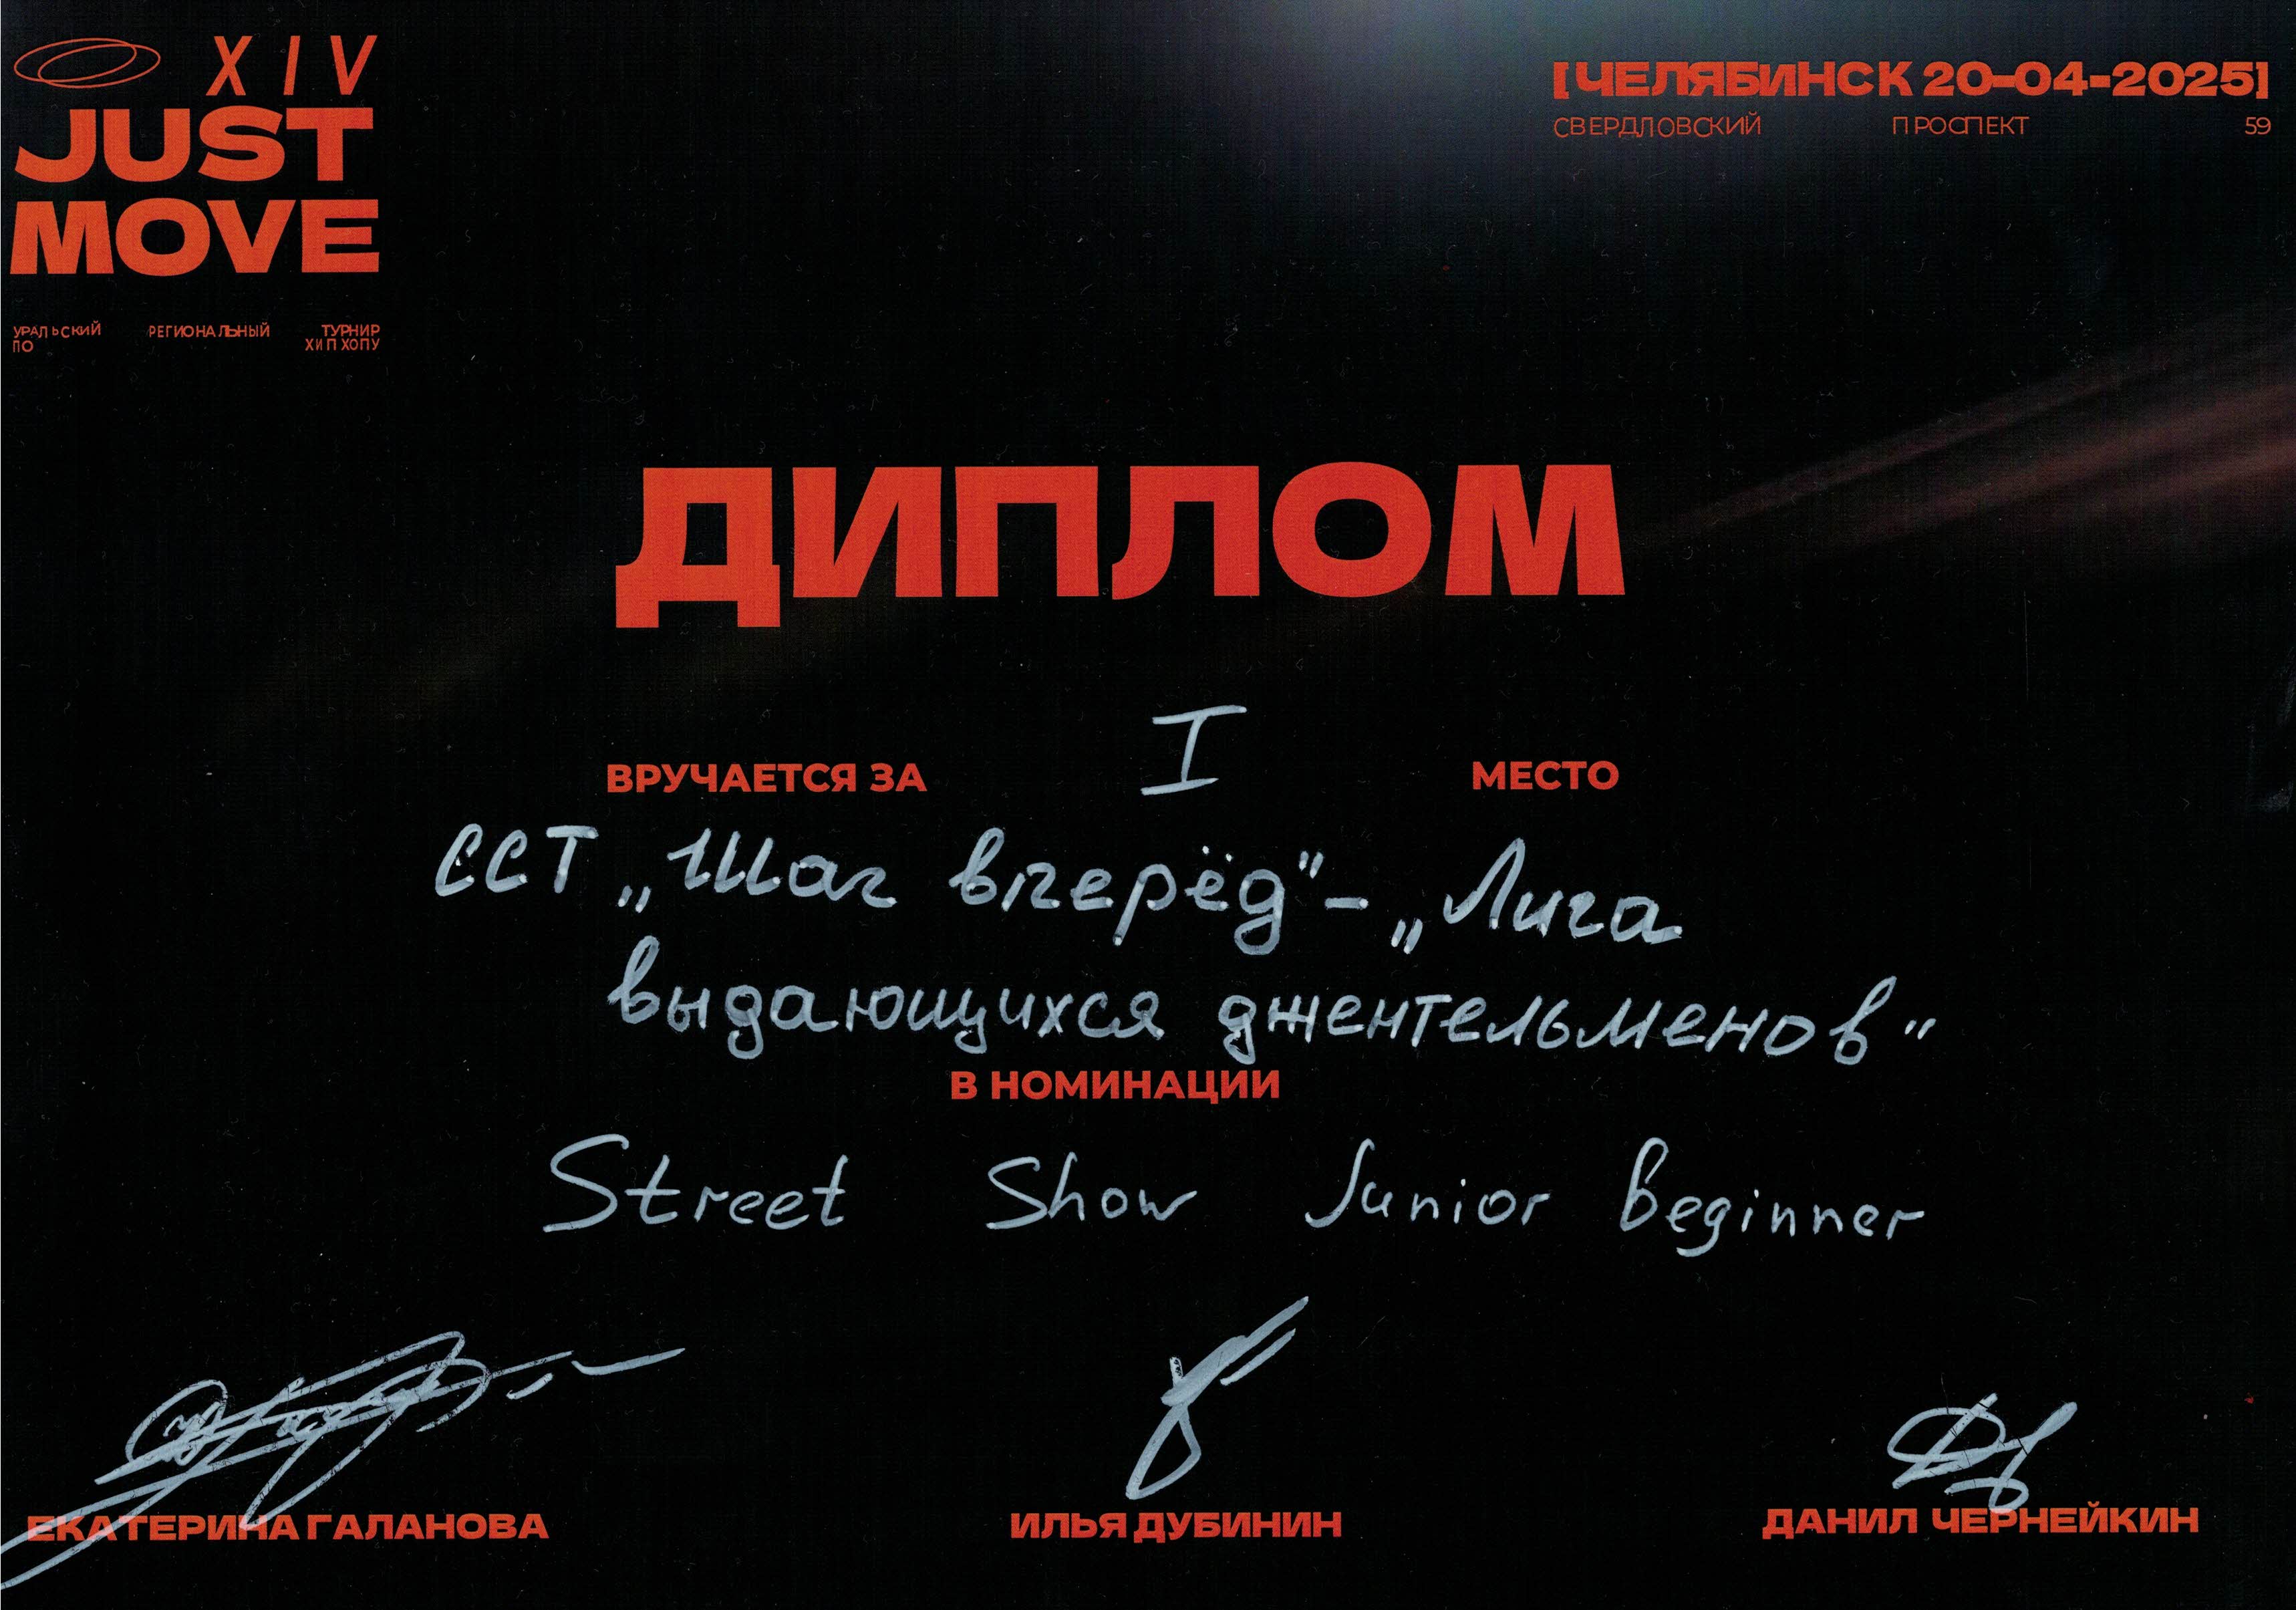 XIV
JUST
MOVE
УРАЛЬСКИЙ РЕГИОНАЛЬНЫЙ ТУРНИР
ПО ХИП ХОПУ
[ЧЕЛЯБИНСК 20-04-2025]
СВЕРДЛОВСКИЙ ПРОСПЕКТ 59
ДИПЛОМ
ВРУЧАЕТСЯ ЗА I МЕСТО
ССТ „Шаг вперёд" – „Лига
выдающихся джентельменов"
В НОМИНАЦИИ
Street Show Junior Beginner
ЕКАТЕРИНА ГАЛАНОВА ИЛЬЯ ДУБИНИН ДАНИЛ ЧЕРНЕЙКИН